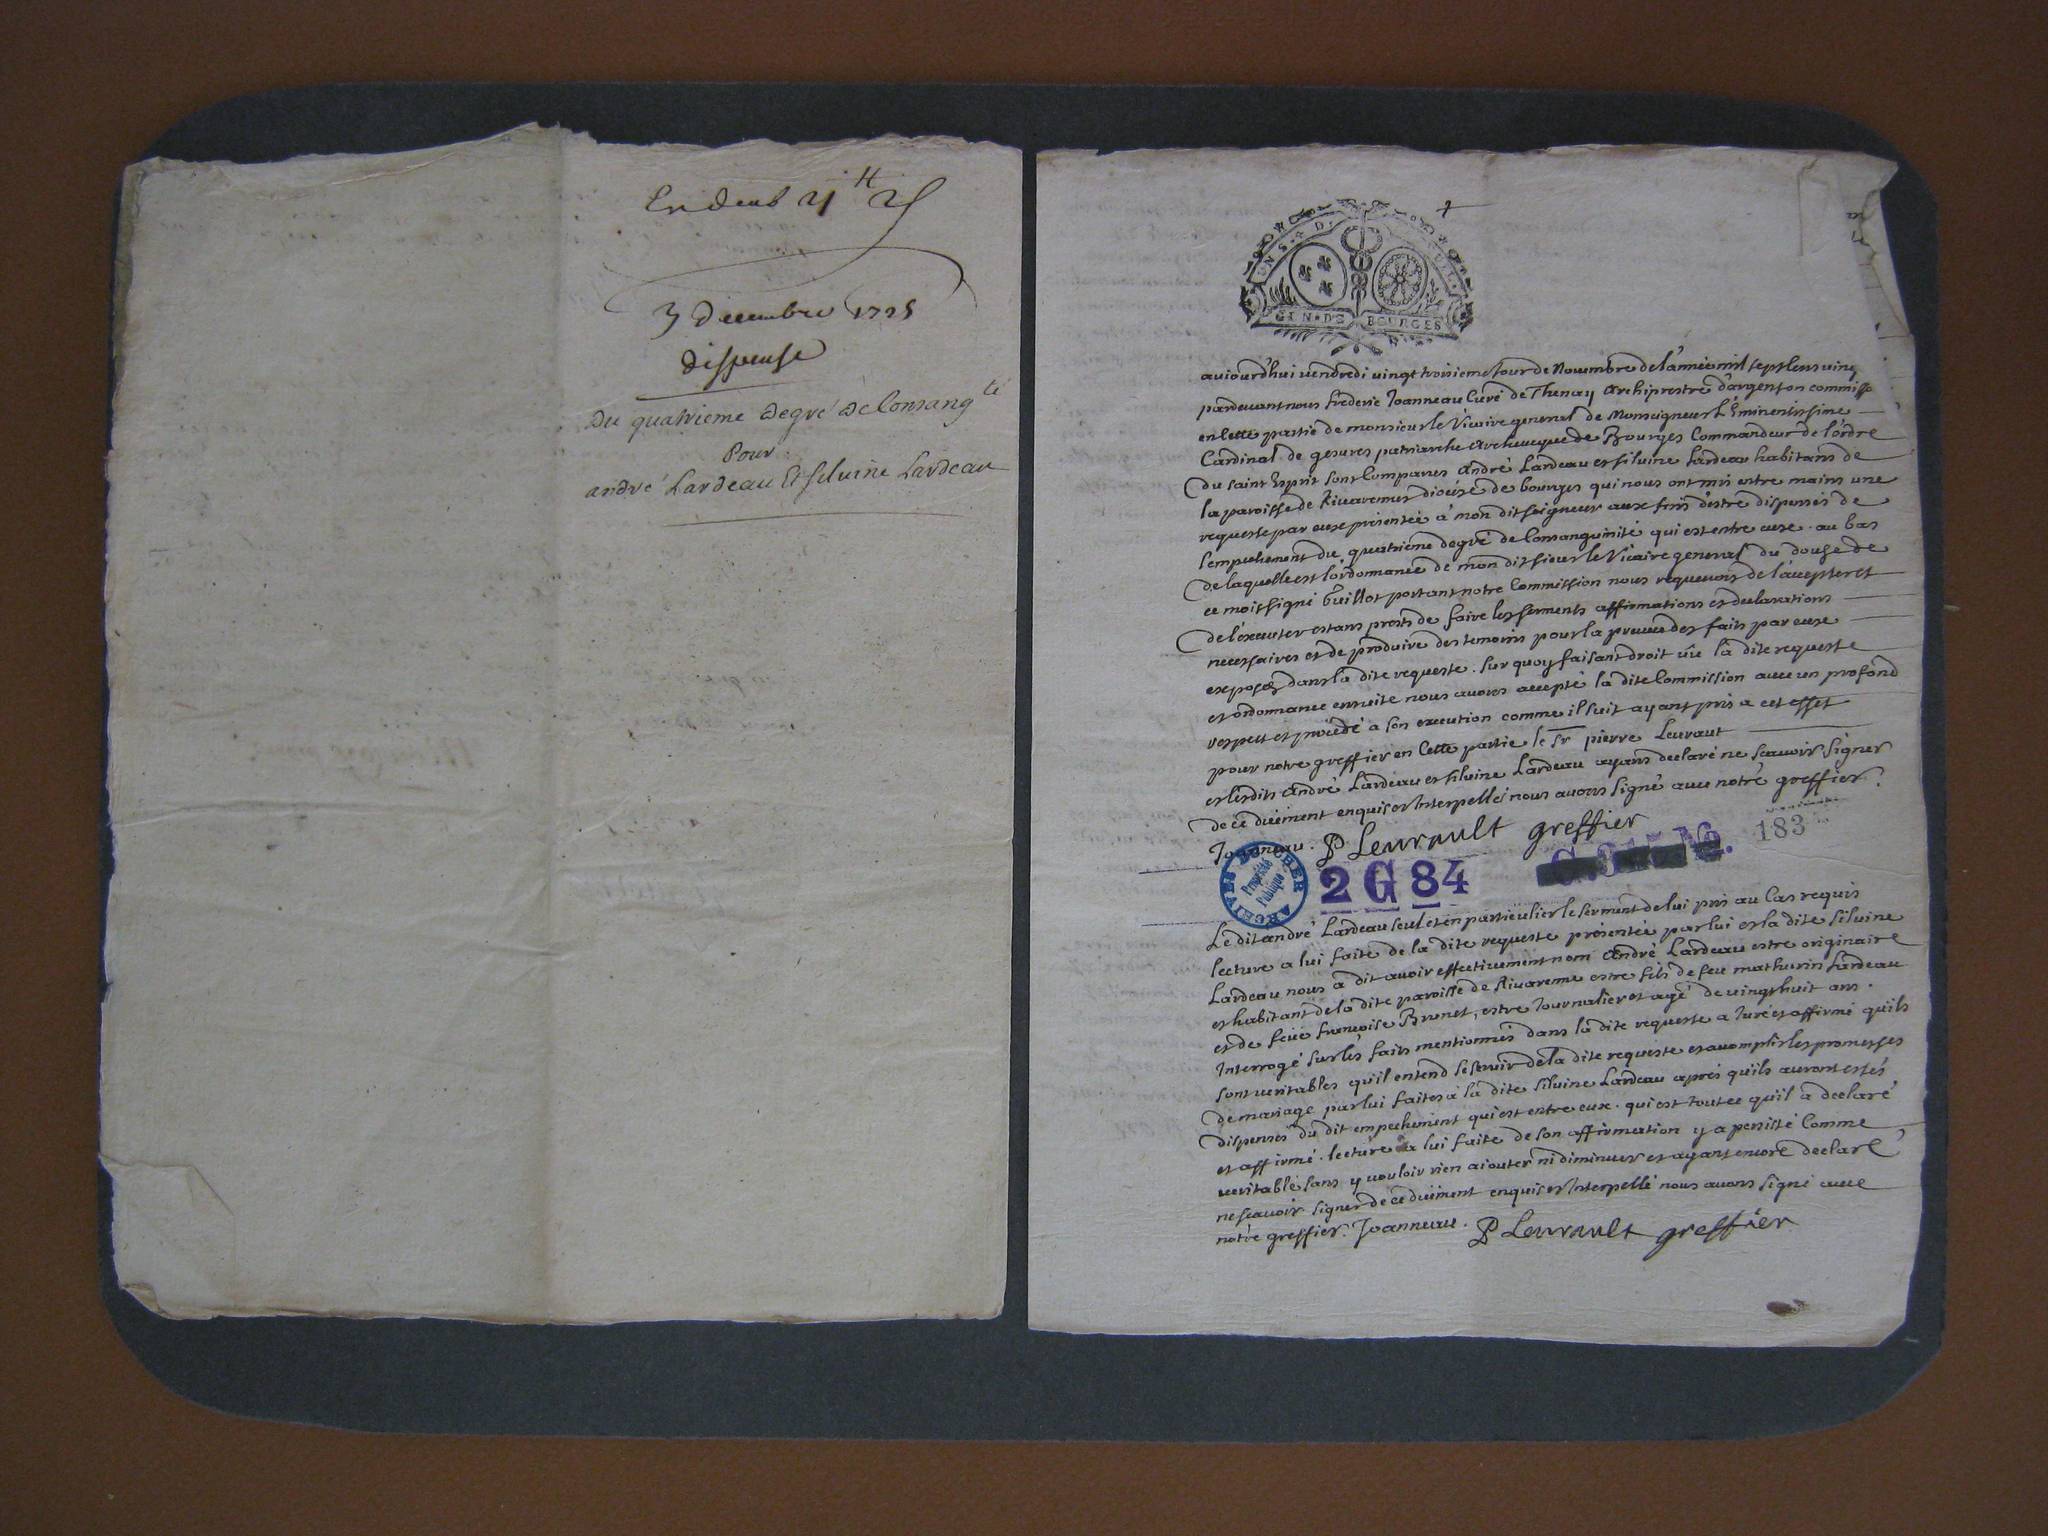 3 decembre 1725
dispense
Du quatrieme degré de Consang té
Pour
andré Lardeau Et Silvine Lardeau
GEN · DE BOURGES
aujourd'huy vendredi vingt troisieme Jour de Novembre de l'année mil sept Cens vingt
pardevant nous frederic Joanneau Curé de Thenay Archiprestre d'argenton commiss
en Cette partie de monsieur le Vicaire general de Monseigneur L'Eminentissime
Cardinal de gesvres patriarche Archeveque de Bourges Commandeur de l'ordre
du saint Esprit sont Comparus André Lardeau et silvine Lardeau habitans de
la paroisse de Rivarennes diocése de bourges qui nous ont mis entre mains une
requeste par eux présentée à mon dit seigneur aux fins d'estre dispensés de
l'empechement du quatriéme degré de Consanguinité qui est entre eux. au bas
de laquelle est l'ordonnance de mon dit sieur le Vicaire general du douze de
ce mois signé Guillot portant notre Commission nous requerant de l'accepter et
de l'éxecuter estans prests de faire les serments affirmations et declarations
necessaires et de produire des temoins pour la preuve des faits par eux
exposez dans la dite requeste. Sur quoy faisant droit vûe la dite requeste
et ordonnance ensuite nous avons accepté la dite Commission avec un profond
respect et procédé a son execution comme il suit ayant pris a cet effet
pour notre greffier en Cette partie le Sr pierre Levraut
et lesdits André Lardeau et silvine Lardeau ayans declaré ne scavoir signer
de ce düement enquis et Interpellés nous avons signé avec notre greffier.
Joanneau. P Levrault greffier
183
ARCHIVES DU CHER
Propriété
Publique
2 G 84
Le dit andré Lardeau seul et en particulier le serment de lui pris au Cas requis
lecture a lui faite de la dite requeste presentée par lui et la dite silvine
Lardeau nous a dit avoir effectivement nom André Lardeau estre originaire
et habitant de la dite paroisse de Rivarenne estre fils de feu mathurin Lardeau
et de feüe françoise Brunet, estre Journalier et agé de vingt huit ans.
Interrogé sur les faits mentionnés dans la dite requeste a Juré et affirmé qu'ils
sont veritables qu'il entend se servir de la dite requeste et accomplir les promesses
de mariage par lui faites à la dite silvine Lardeau aprés qu'ils auront estés
dispensés du dit empechement qui est entre eux. qui est tout ce qu'il a declaré
et affirmé. lecture a lui faite de son affirmation y a persisté Comme
veritable sans y vouloir rien ajouter ni diminuer et ayant encore declaré
ne scavoir signer de ce düement enquis et Interpellé nous avons signé avec
notre greffier. Joanneau. P Levrault greffier